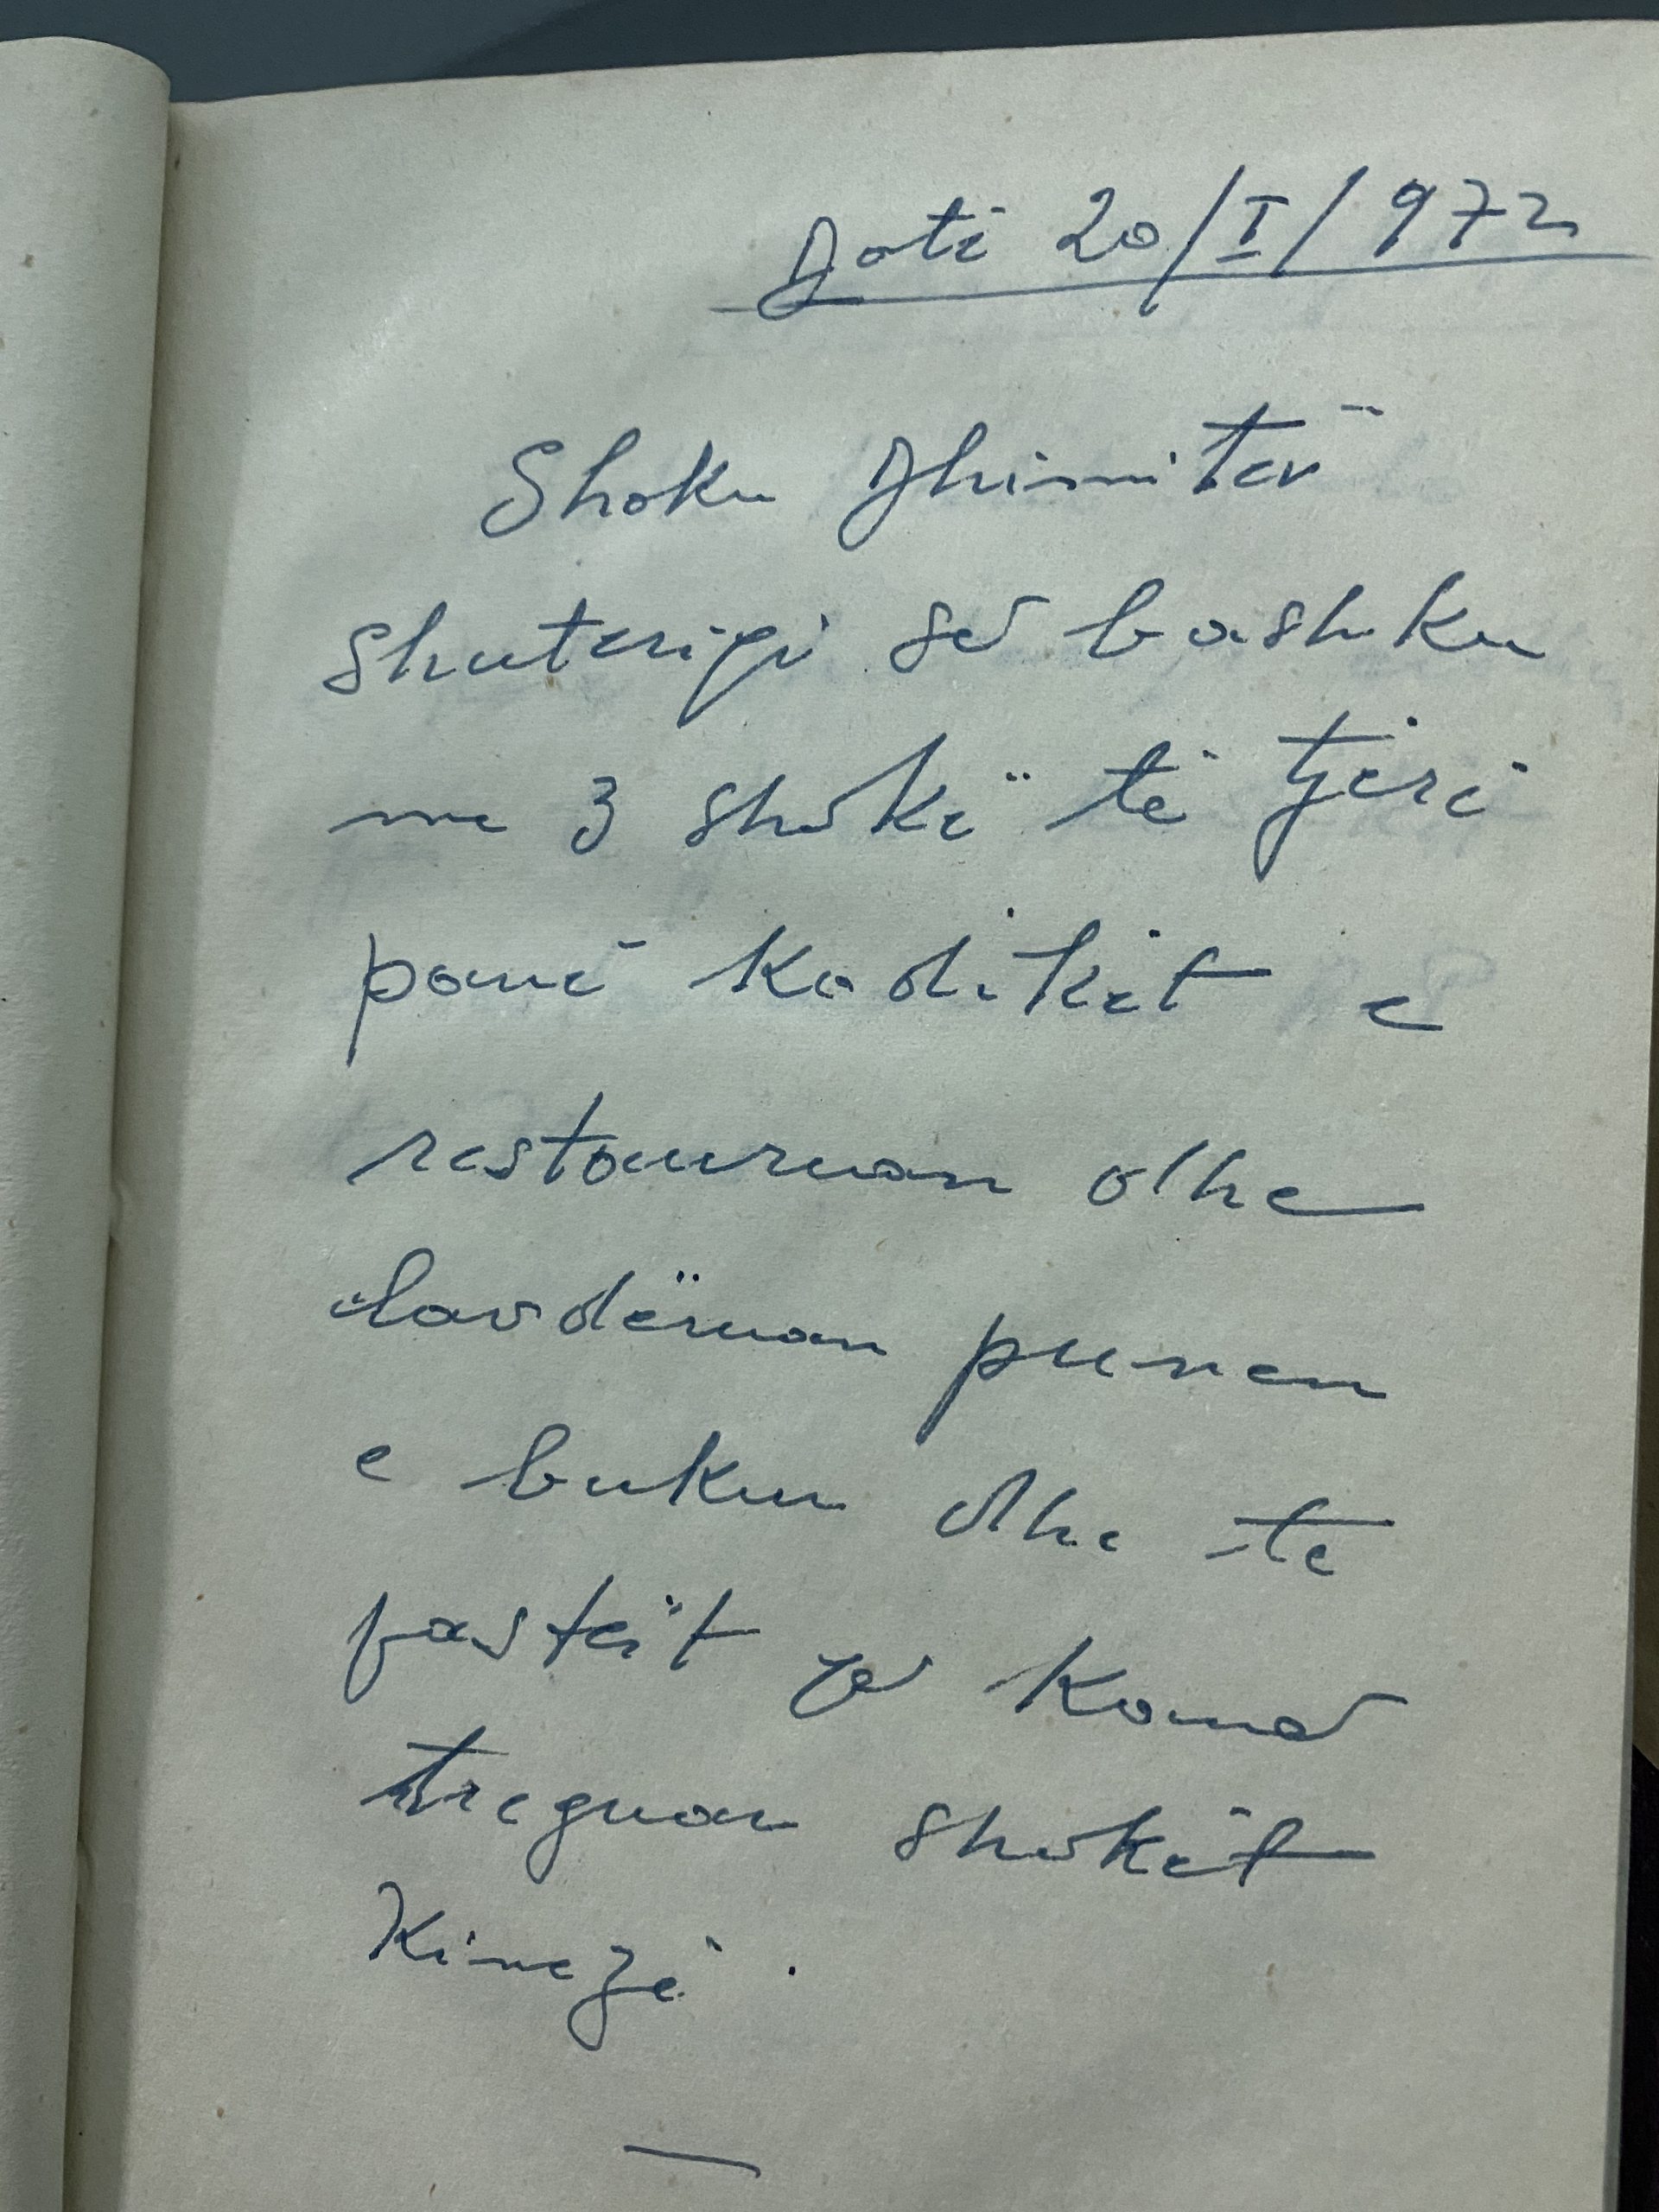 Datë 20/I/972
Shoku Dhimitër
Shuteriqi së bashku
me 3 shokë të tjerë
panë kodikët e
restauruan dhe
lavdëruan punen
e bukur dhe të
pastët që kanë
treguar shokët
Kinezë.